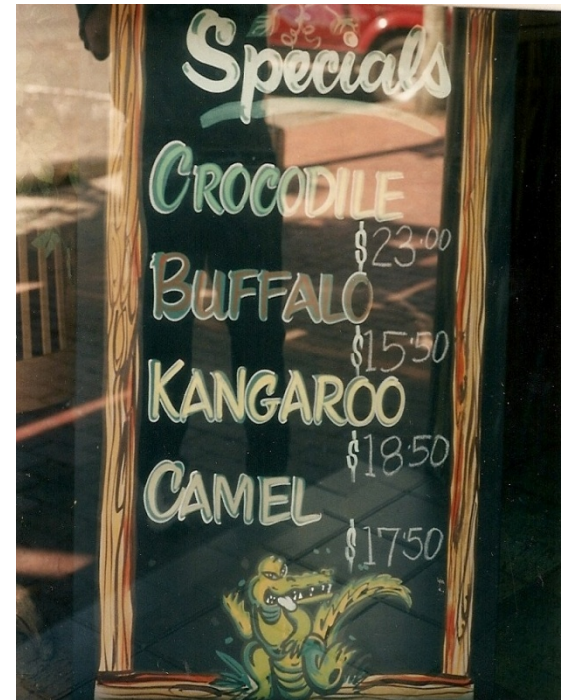 Specials
CROCODILE
$23.00
BUFFALO
$15.50
KANGAROO
$18.50
CAMEL
$17.50